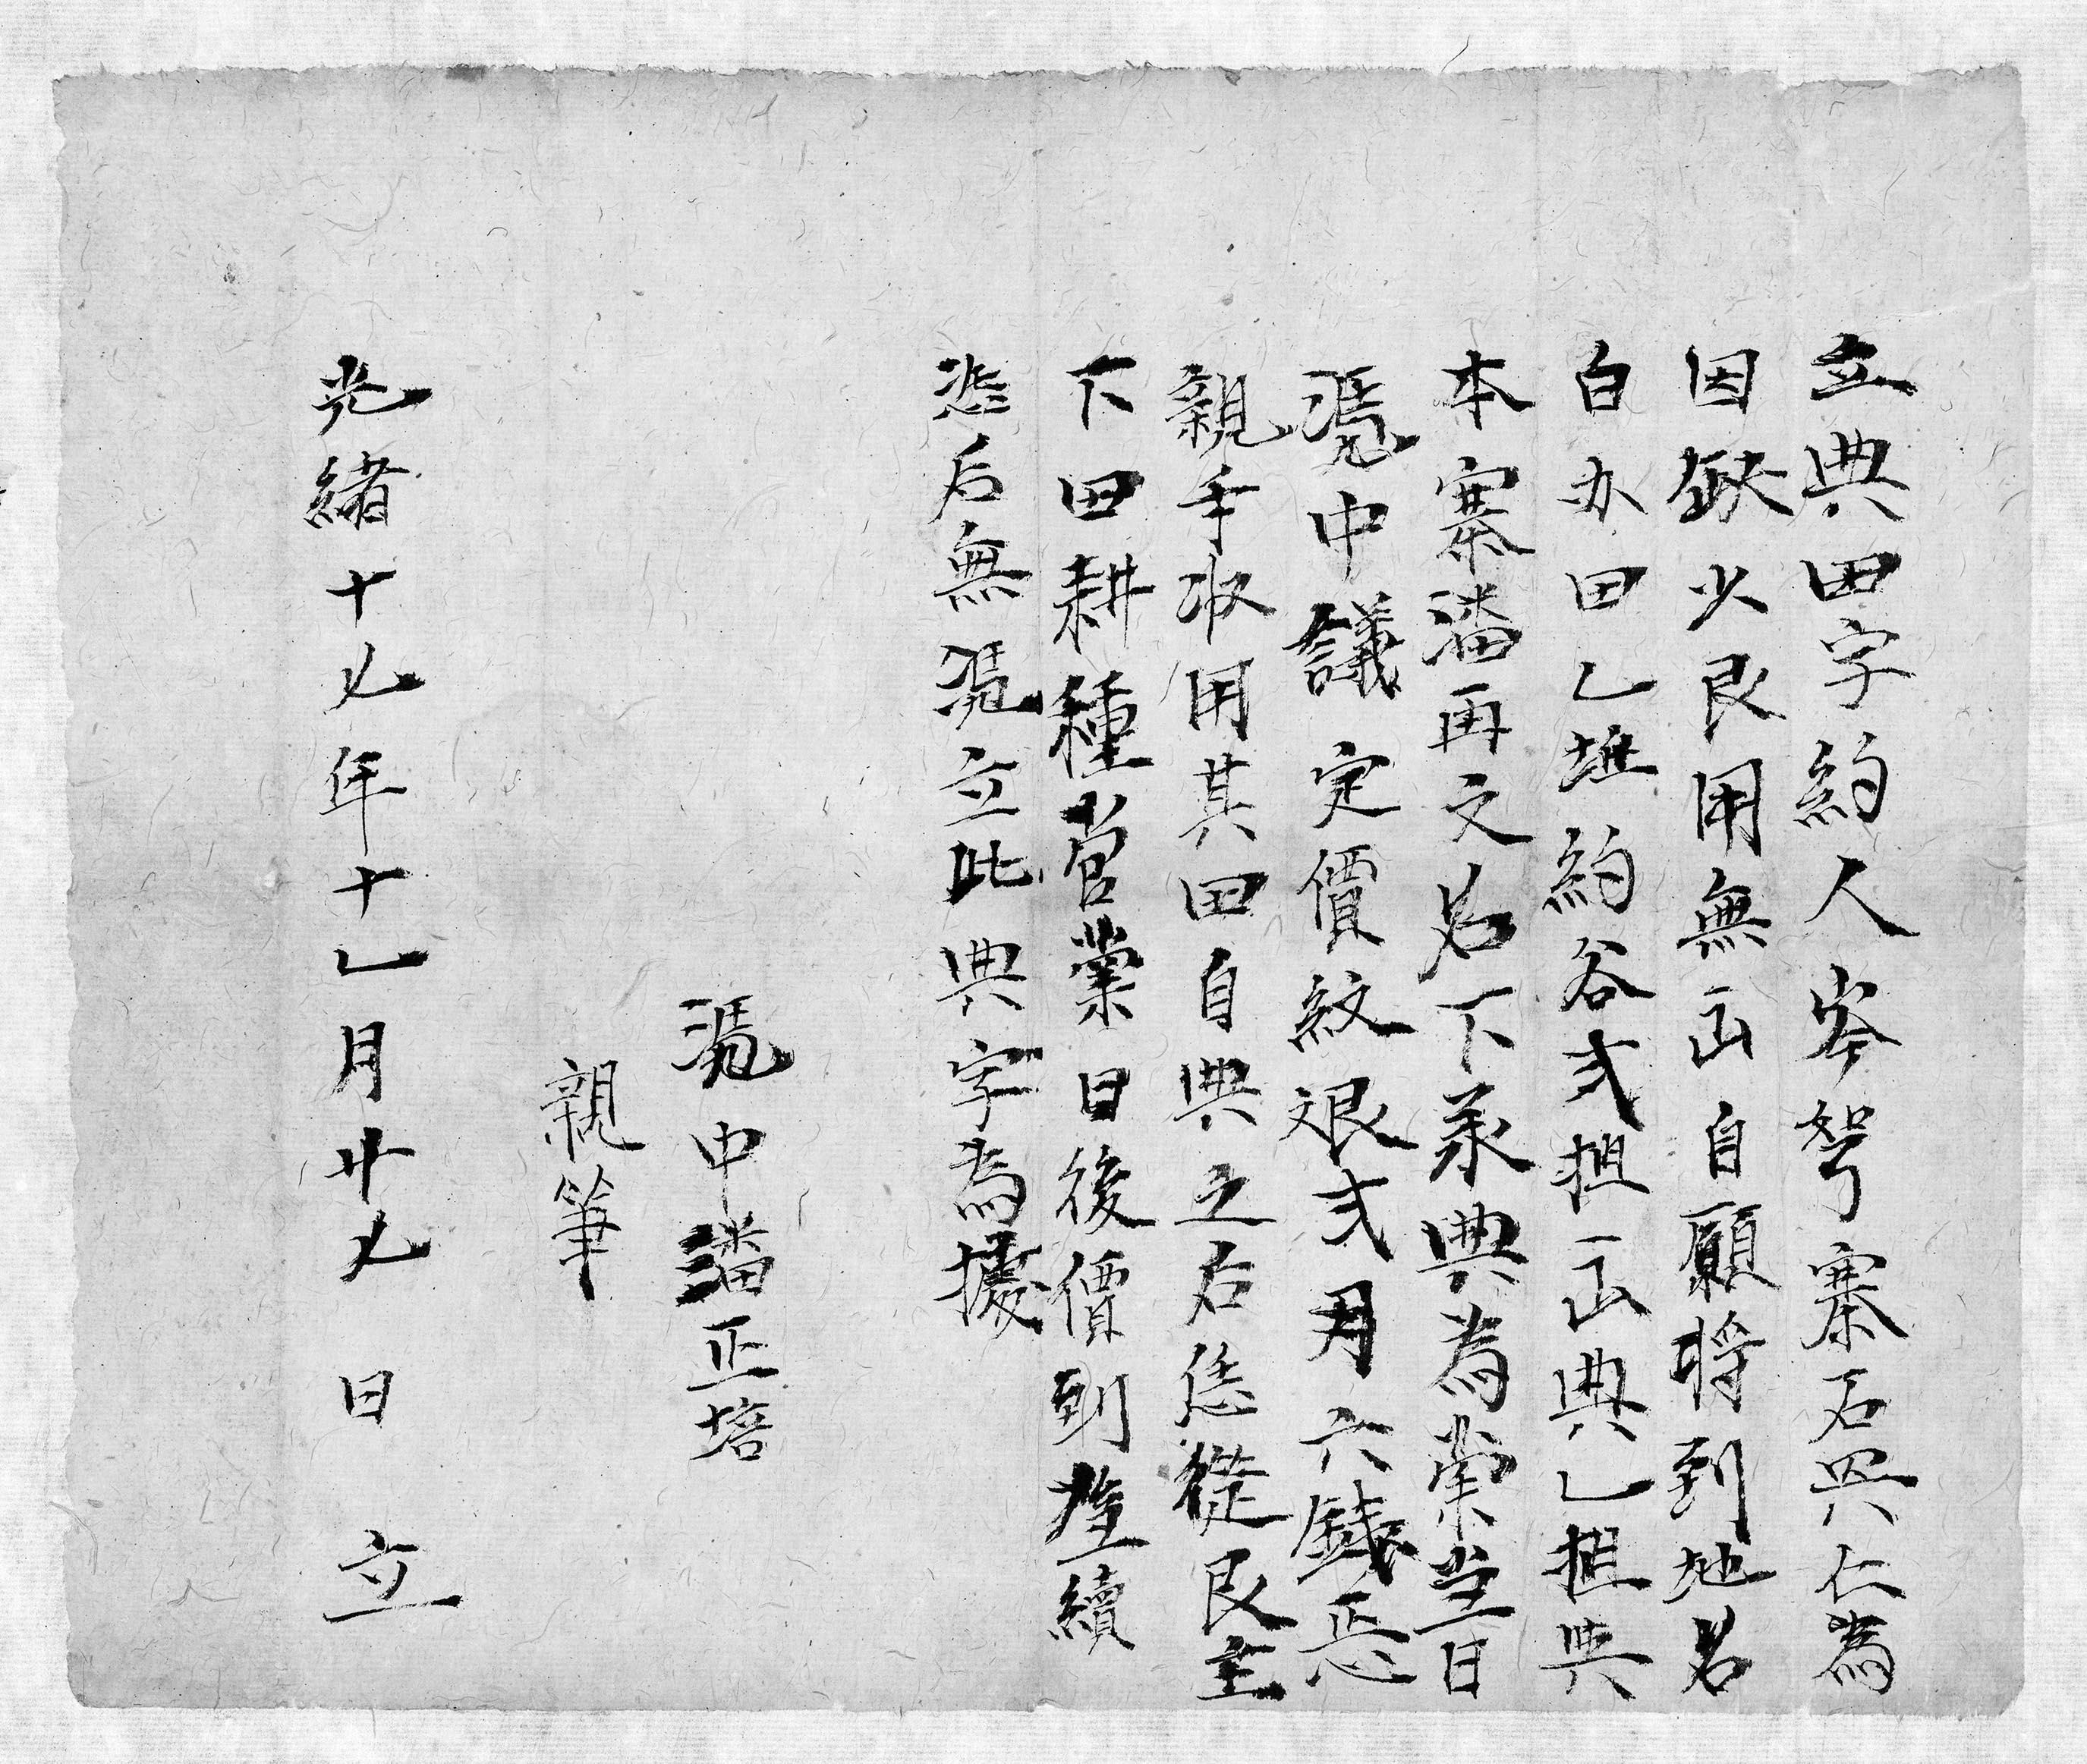 立典田字約人岑弩寨石兴仁為
因缺少艮用無面自願将到地名
白办田乚坵約谷弍担面典乚担典
本寨潘再文名下承典為業當日
凴中議定價紋艮弍月六錢正恁
親手收用其田自典之后恁從艮主
下田耕種管業日後價到贖續
恐后無凴立此典字為據
凴中潘正培
親筆
光緒十九年十乚月廿九日立